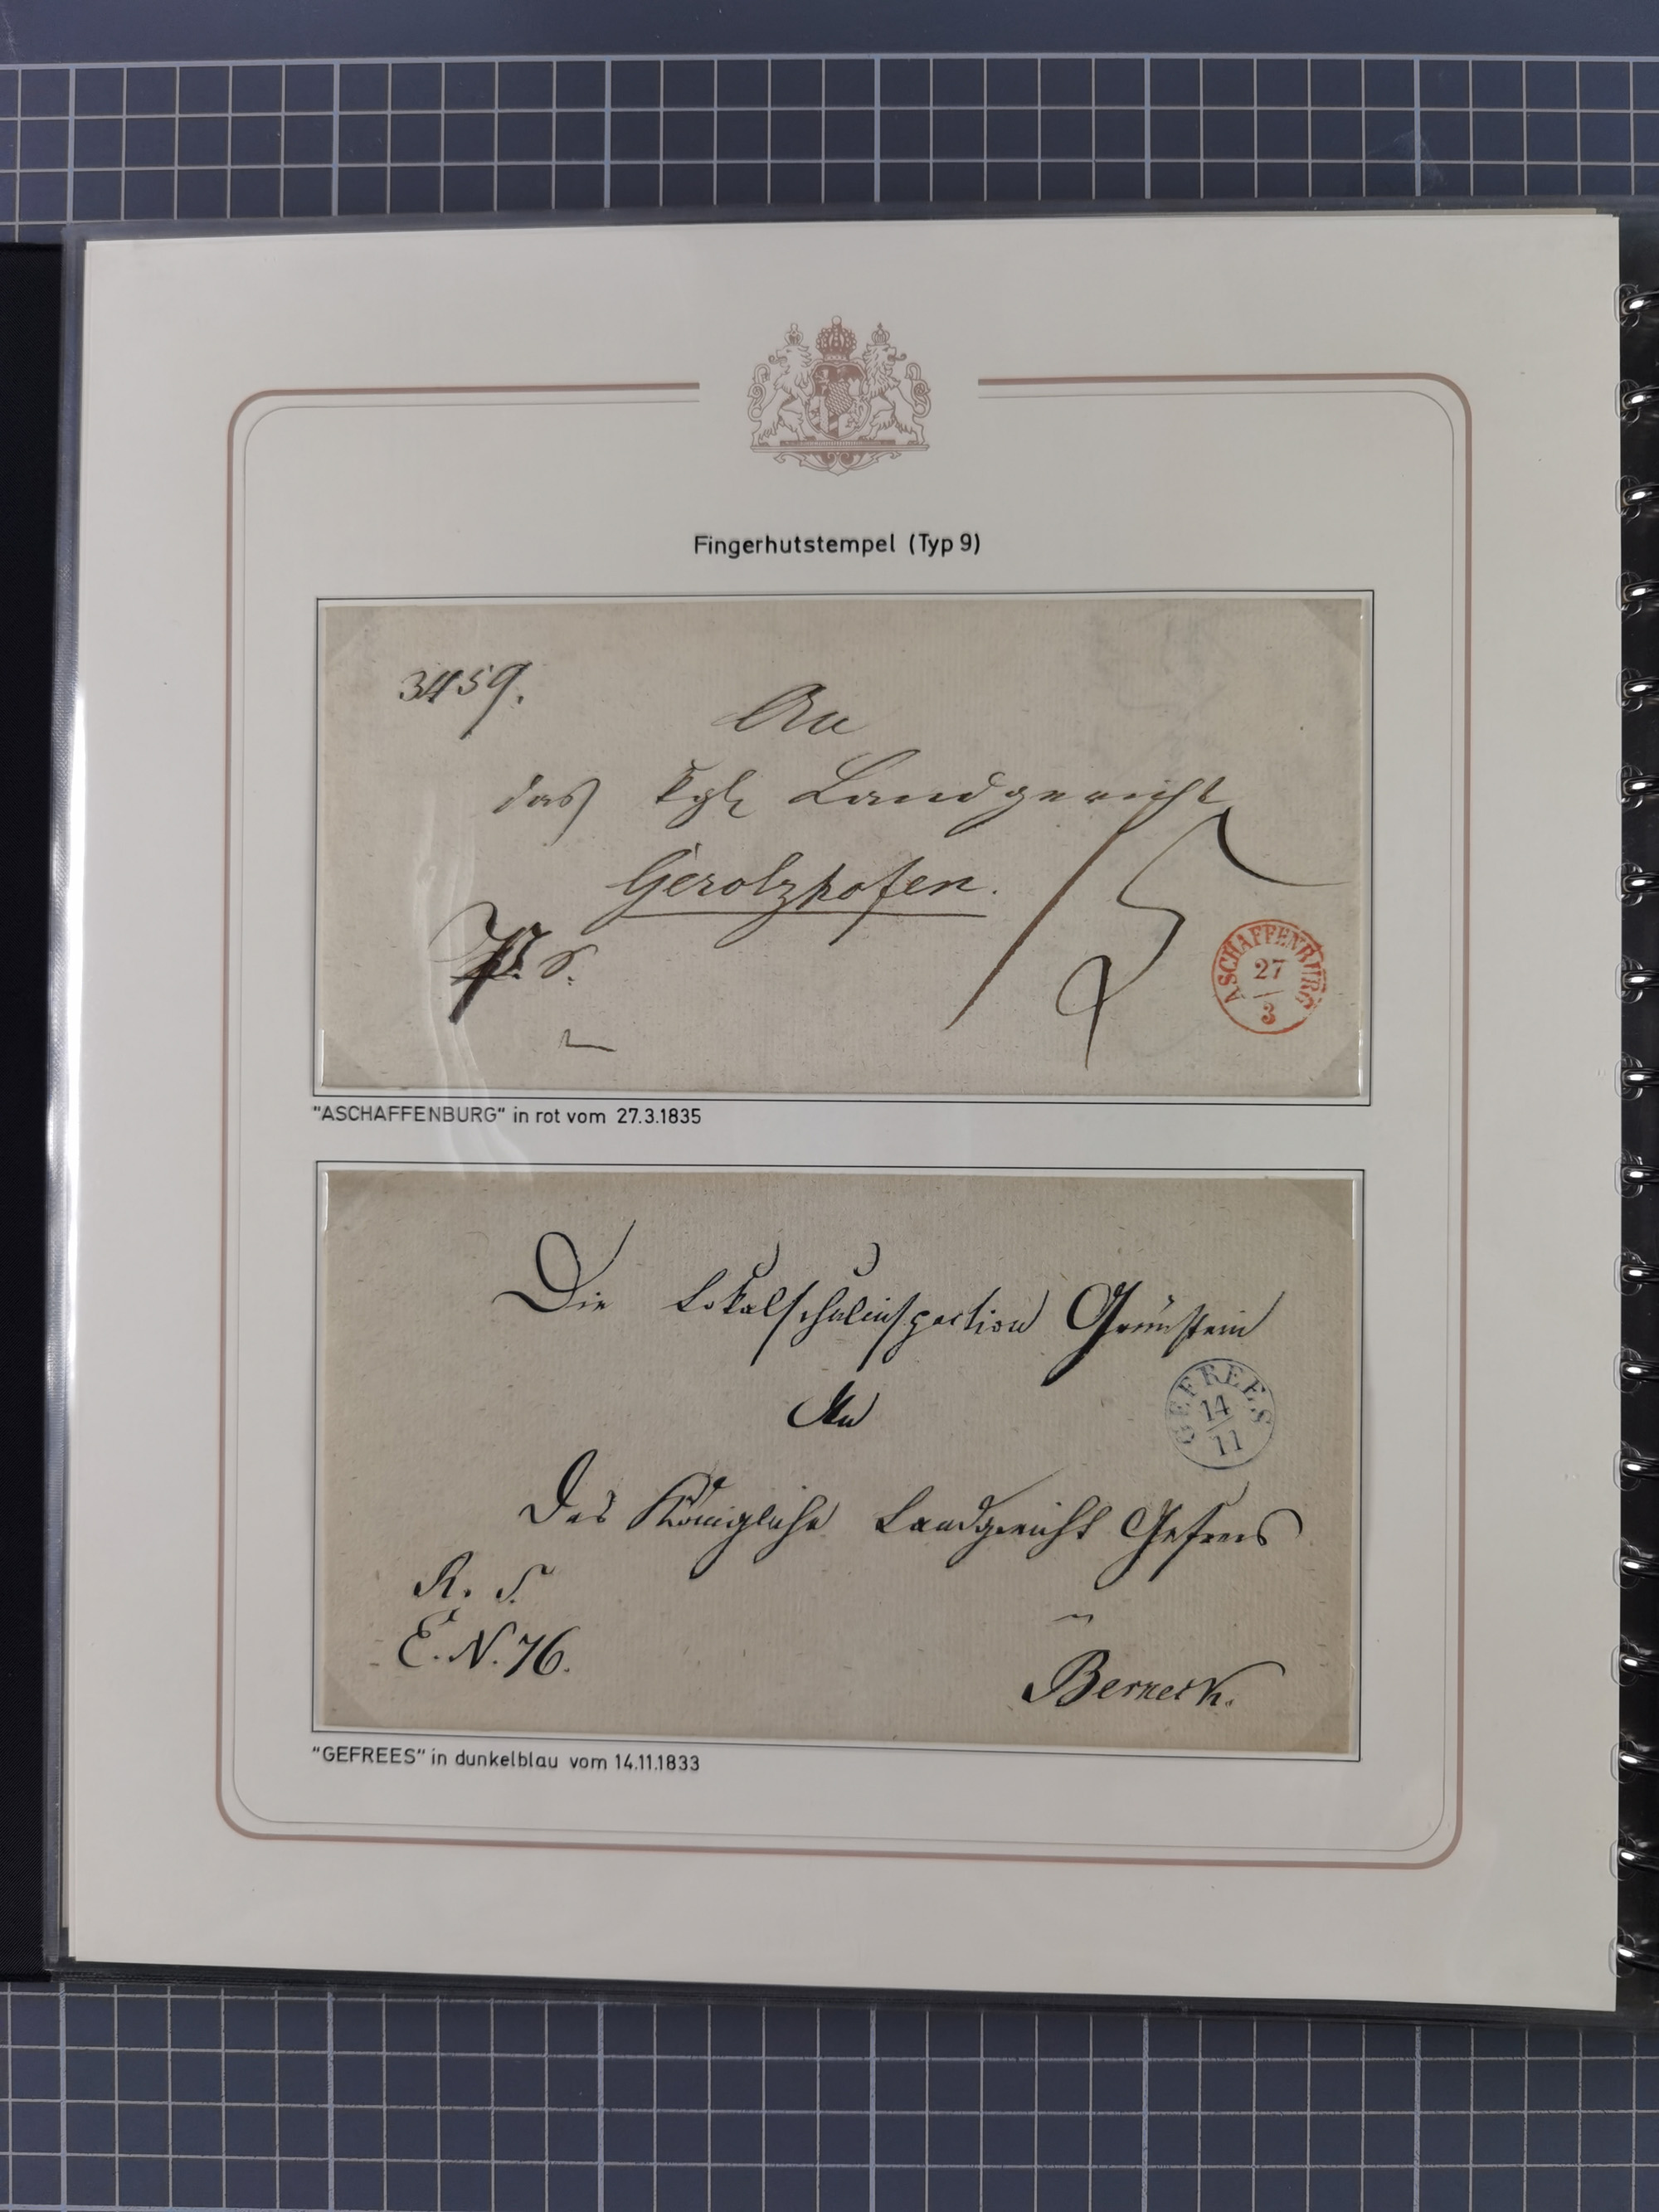 Fingerhutstempel (Typ 9)
3459.
An
das kgl. Landgericht
Gerolzhofen.
ASCHAFFENBURG
27
3
"ASCHAFFENBURG" in rot vom 27.3.1835
Die Lokalschulinspection Grünstein
An
GEFREES
14
11
Das Königliche Landgericht Gefrees
R. S.
E. N. 76.
Berneck.
"GEFREES" in dunkelblau vom 14.11.1833